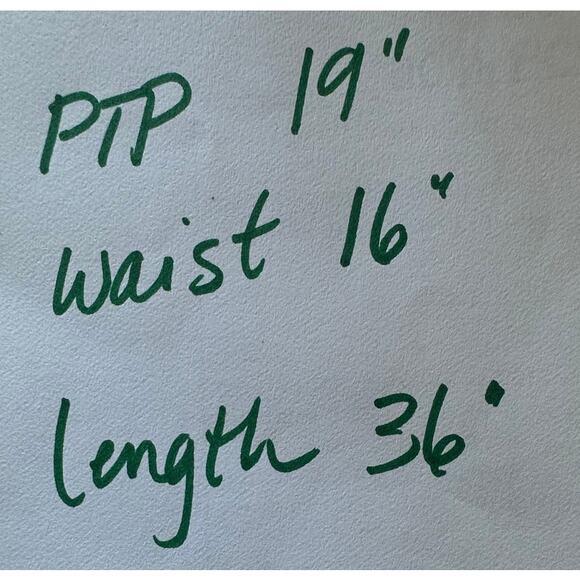 PTP 19"
waist 16"
length 36"